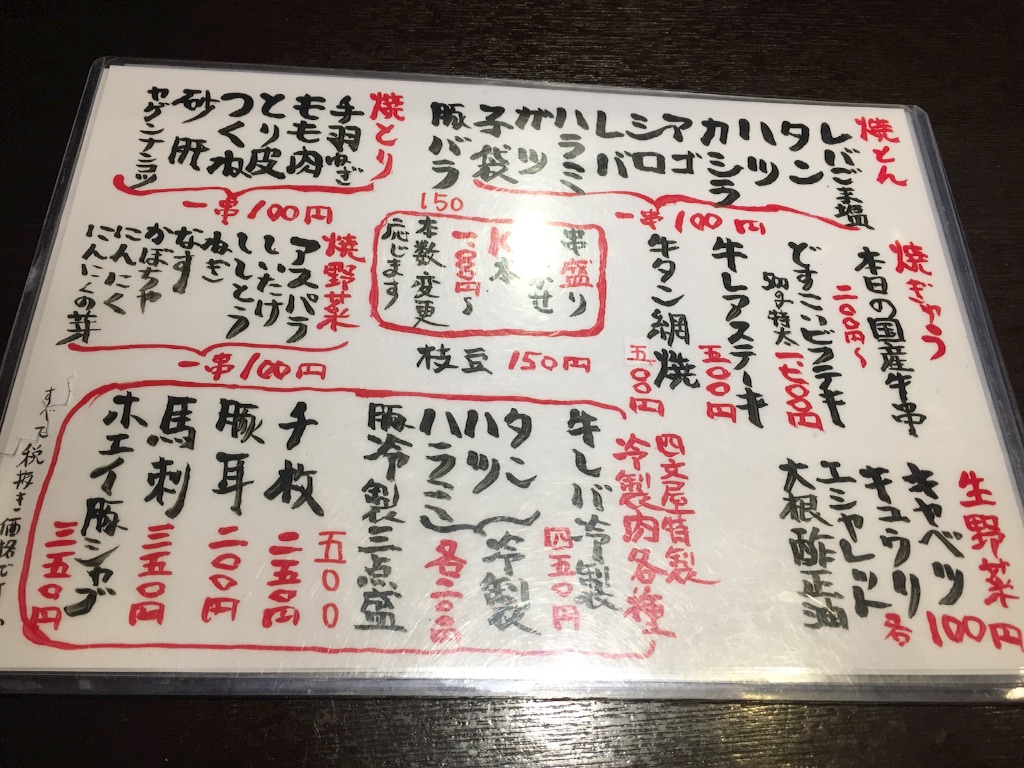 焼とん
レバごま塩
タン
ハツ
カシラ
アゴ
シロ
レバ
ハラミ
ガツ
子袋
豚バラ
150
一串100円
焼とり
手羽
もも肉
とり皮
つくね
砂肝
ヤゲンナンコツ
一串100円
焼ぎゅう
本日の国産牛串
二〇〇円〜
どすこいビフテキ
500g特大
牛レアステーキ
五〇〇円
牛タン網焼
五〇〇円
串盛り
本
本数変更
応じます
焼野菜
アスパラ
しいたけ
ししとう
ねぎ
なす
かぼちゃ
にんにく
にんにくの芽
一串100円
枝豆 150円
生野菜
キャベツ
キュウリ
エシャレット
大根酢正油
各100円
四文屋特製
冷製肉各種
牛レバ冷製
四五〇円
タン
ハツ
ハラミ
冷製
各二〇〇円
豚冷製三点盛
五〇〇
チ枚
二五〇円
豚耳
二〇〇円
馬刺
三五〇円
ホエイ豚シャブ
三五〇円
すべて税抜き価格です